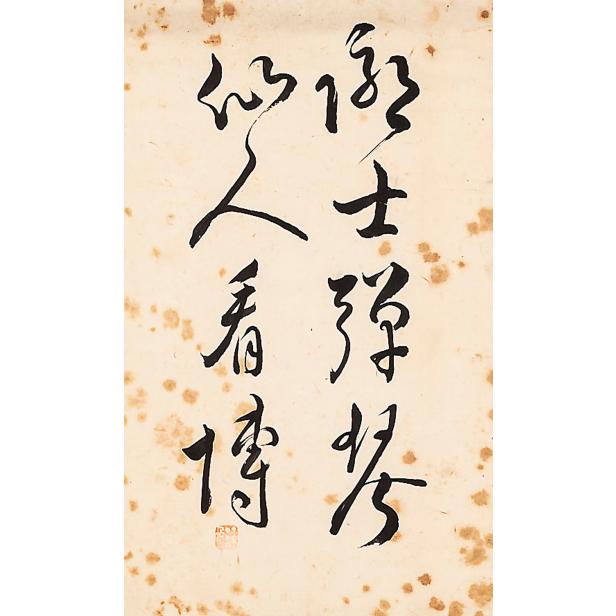 隱士彈琴
仙人看博